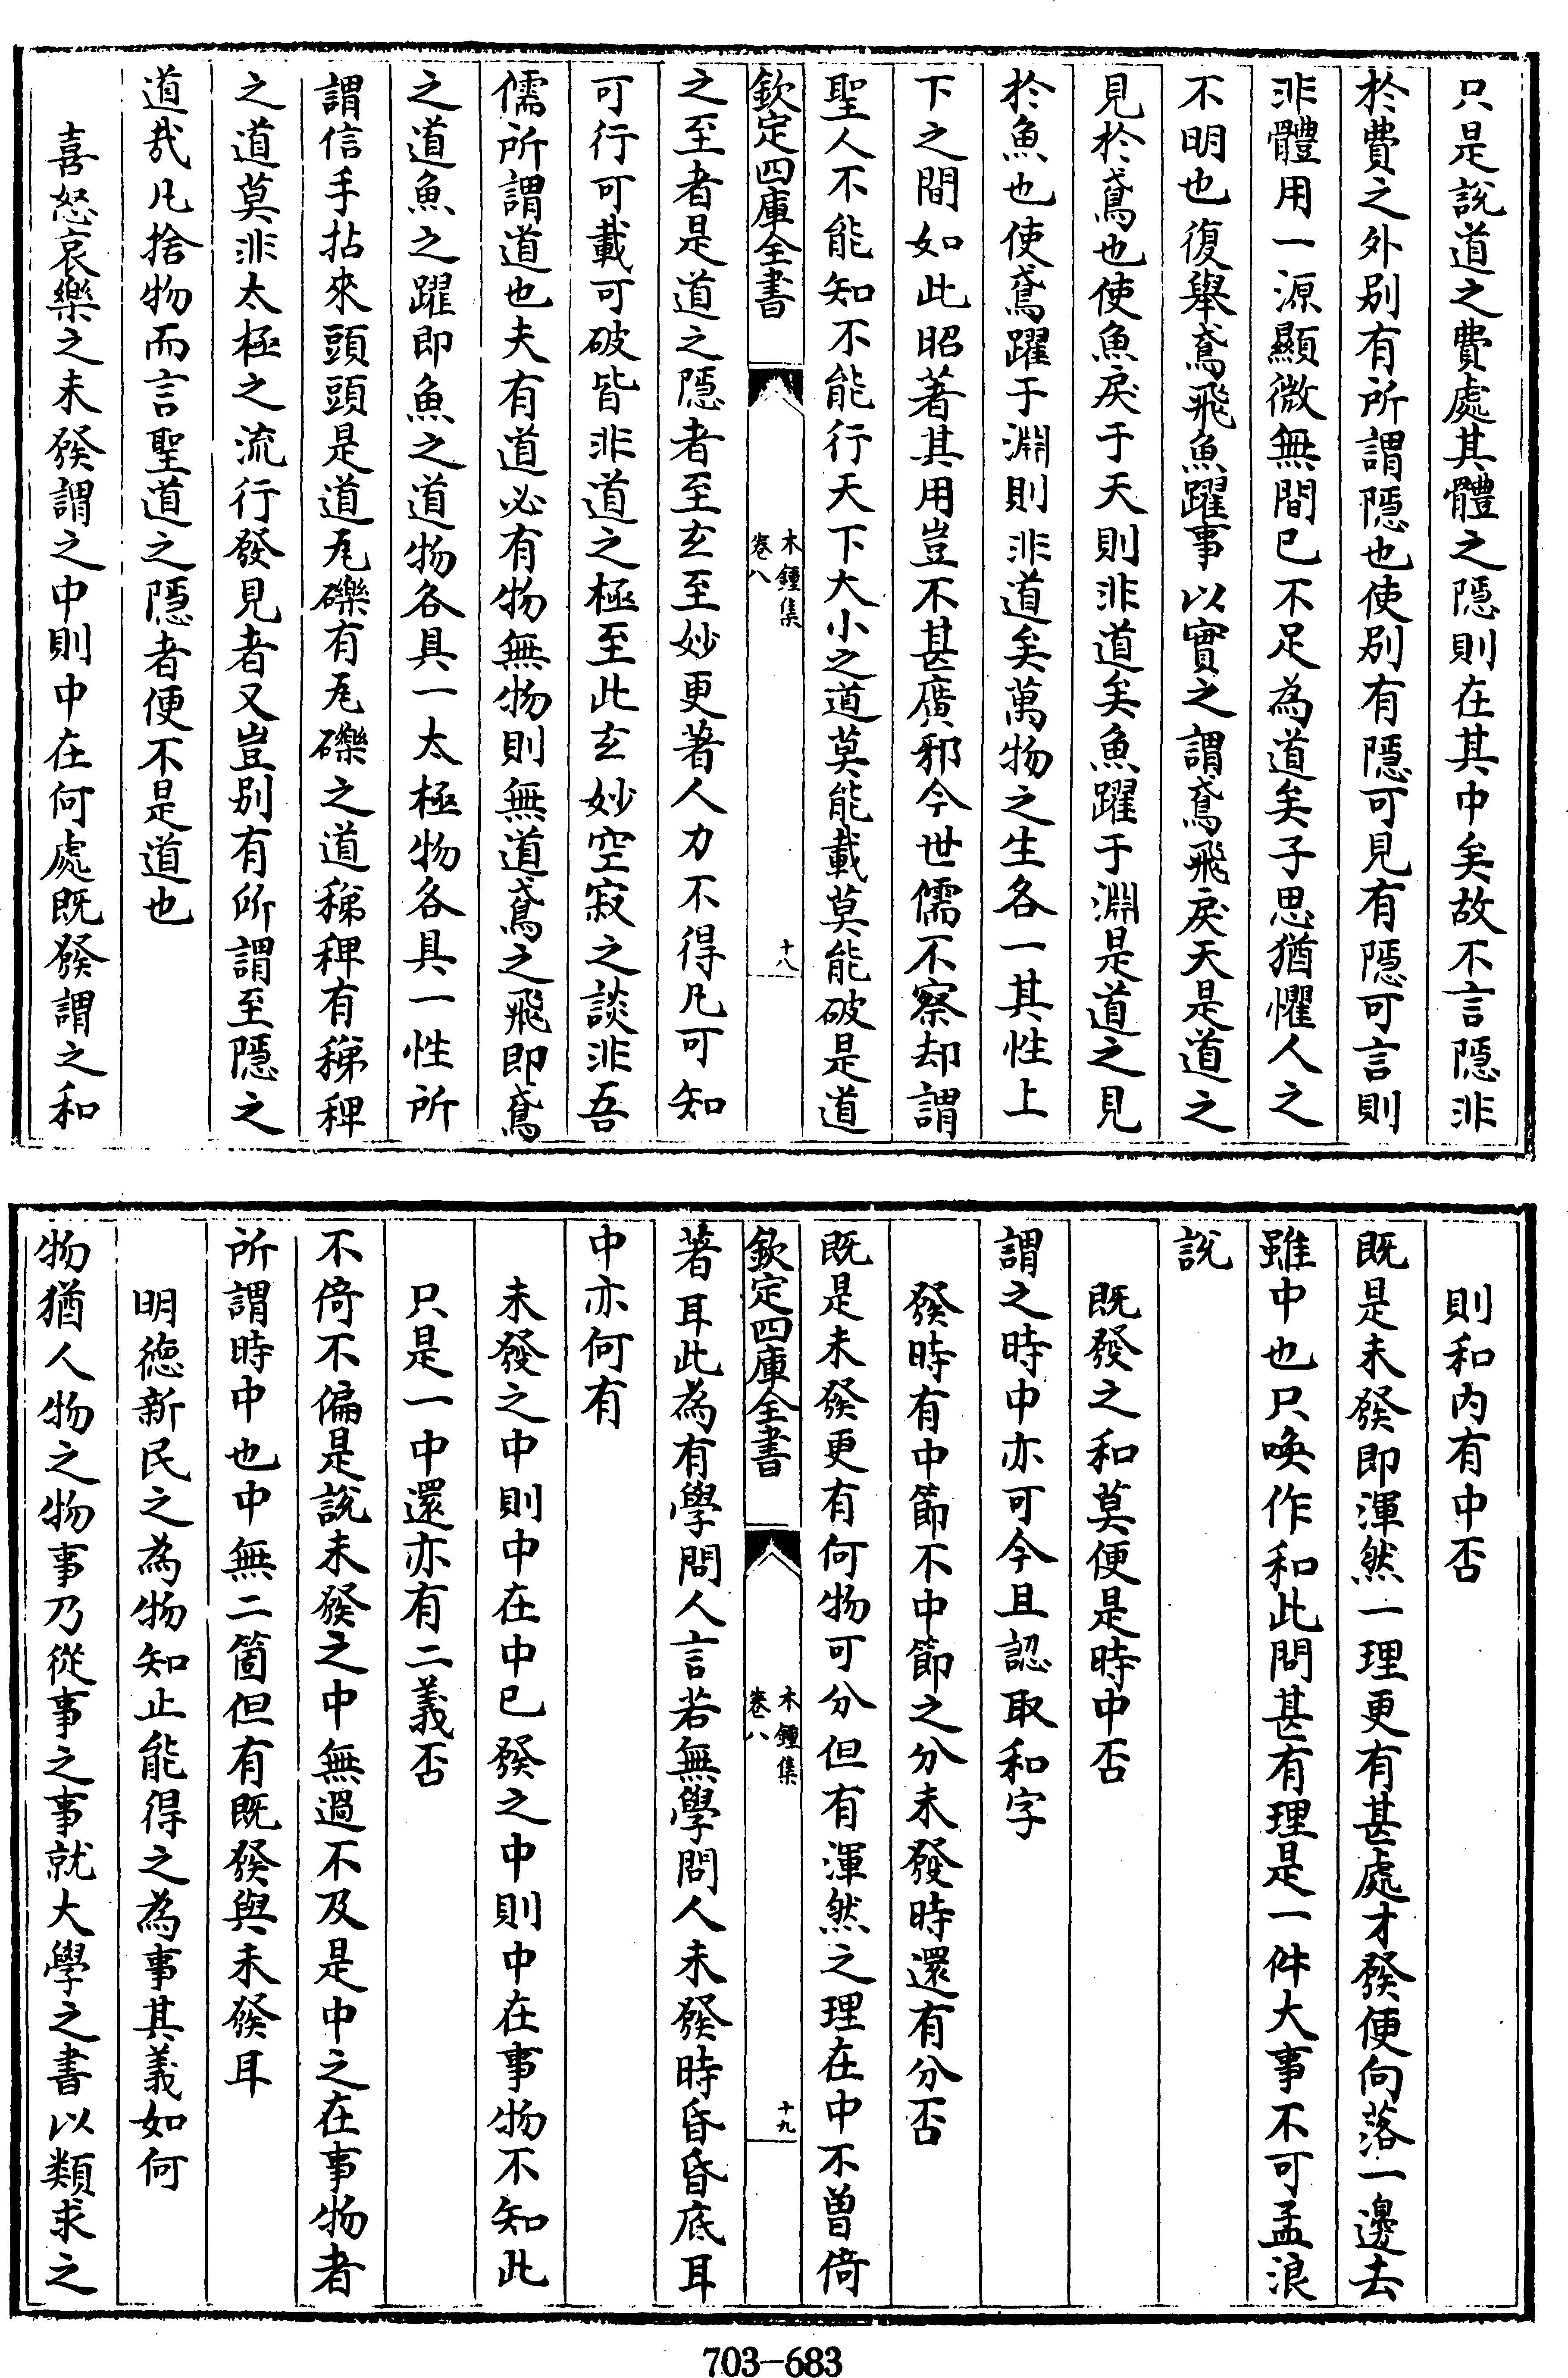 只是説道之費處其體之隠則在其中矣故不言隠非
於費之外别有所謂隠也使别有隠可見有隠可言則
非體用一源顯微無間已不足為道矣子思猶懼人之
不明也復舉鳶飛魚躍事以實之謂鳶飛戾天是道之
見於鳶也使魚戾于天則非道矣魚躍于淵是道之見
於魚也使鳶躍于淵則非道矣萬物之生各一其性上
下之間如此昭著其用豈不甚廣邪今世儒不察却謂
聖人不能知不能行天下大小之道莫能載莫能破是道
欽定四庫全書
木鍾集
卷八
十八
之至者是道之隠者至玄至妙更著人力不得凡可知
可行可載可破皆非道之極至此玄妙空寂之談非吾
儒所謂道也夫有道必有物無物則無道鳶之飛即鳶
之道魚之躍即魚之道物各具一太極物各具一性所
謂信手拈來頭頭是道瓦礫有瓦礫之道稊稗有稊稗
之道莫非太極之流行發見者又豈别有所謂至隠之
道哉凡捨物而言聖道之隠者便不是道也
喜怒哀樂之未發謂之中則中在何處既發謂之和
則和内有中否
既是未發即渾然一理更有甚處才發便向落一邊去
雖中也只喚作和此問甚有理是一件大事不可孟浪
説
既發之和莫便是時中否
謂之時中亦可今且認取和字
發時有中節不中節之分未發時還有分否
既是未發更有何物可分但有渾然之理在中不曾倚
欽定四庫全書
木鍾集
卷八
十九
著耳此為有學問人言若無學問人未發時昏昏底耳
中亦何有
未發之中則中在中已發之中則中在事物不知此
只是一中還亦有二義否
不倚不偏是説未發之中無過不及是中之在事物者
所謂時中也中無二箇但有既發與未發耳
明德新民之為物知止能得之為事其義如何
物猶人物之物事乃從事之事就大學之書以類求之
703-683